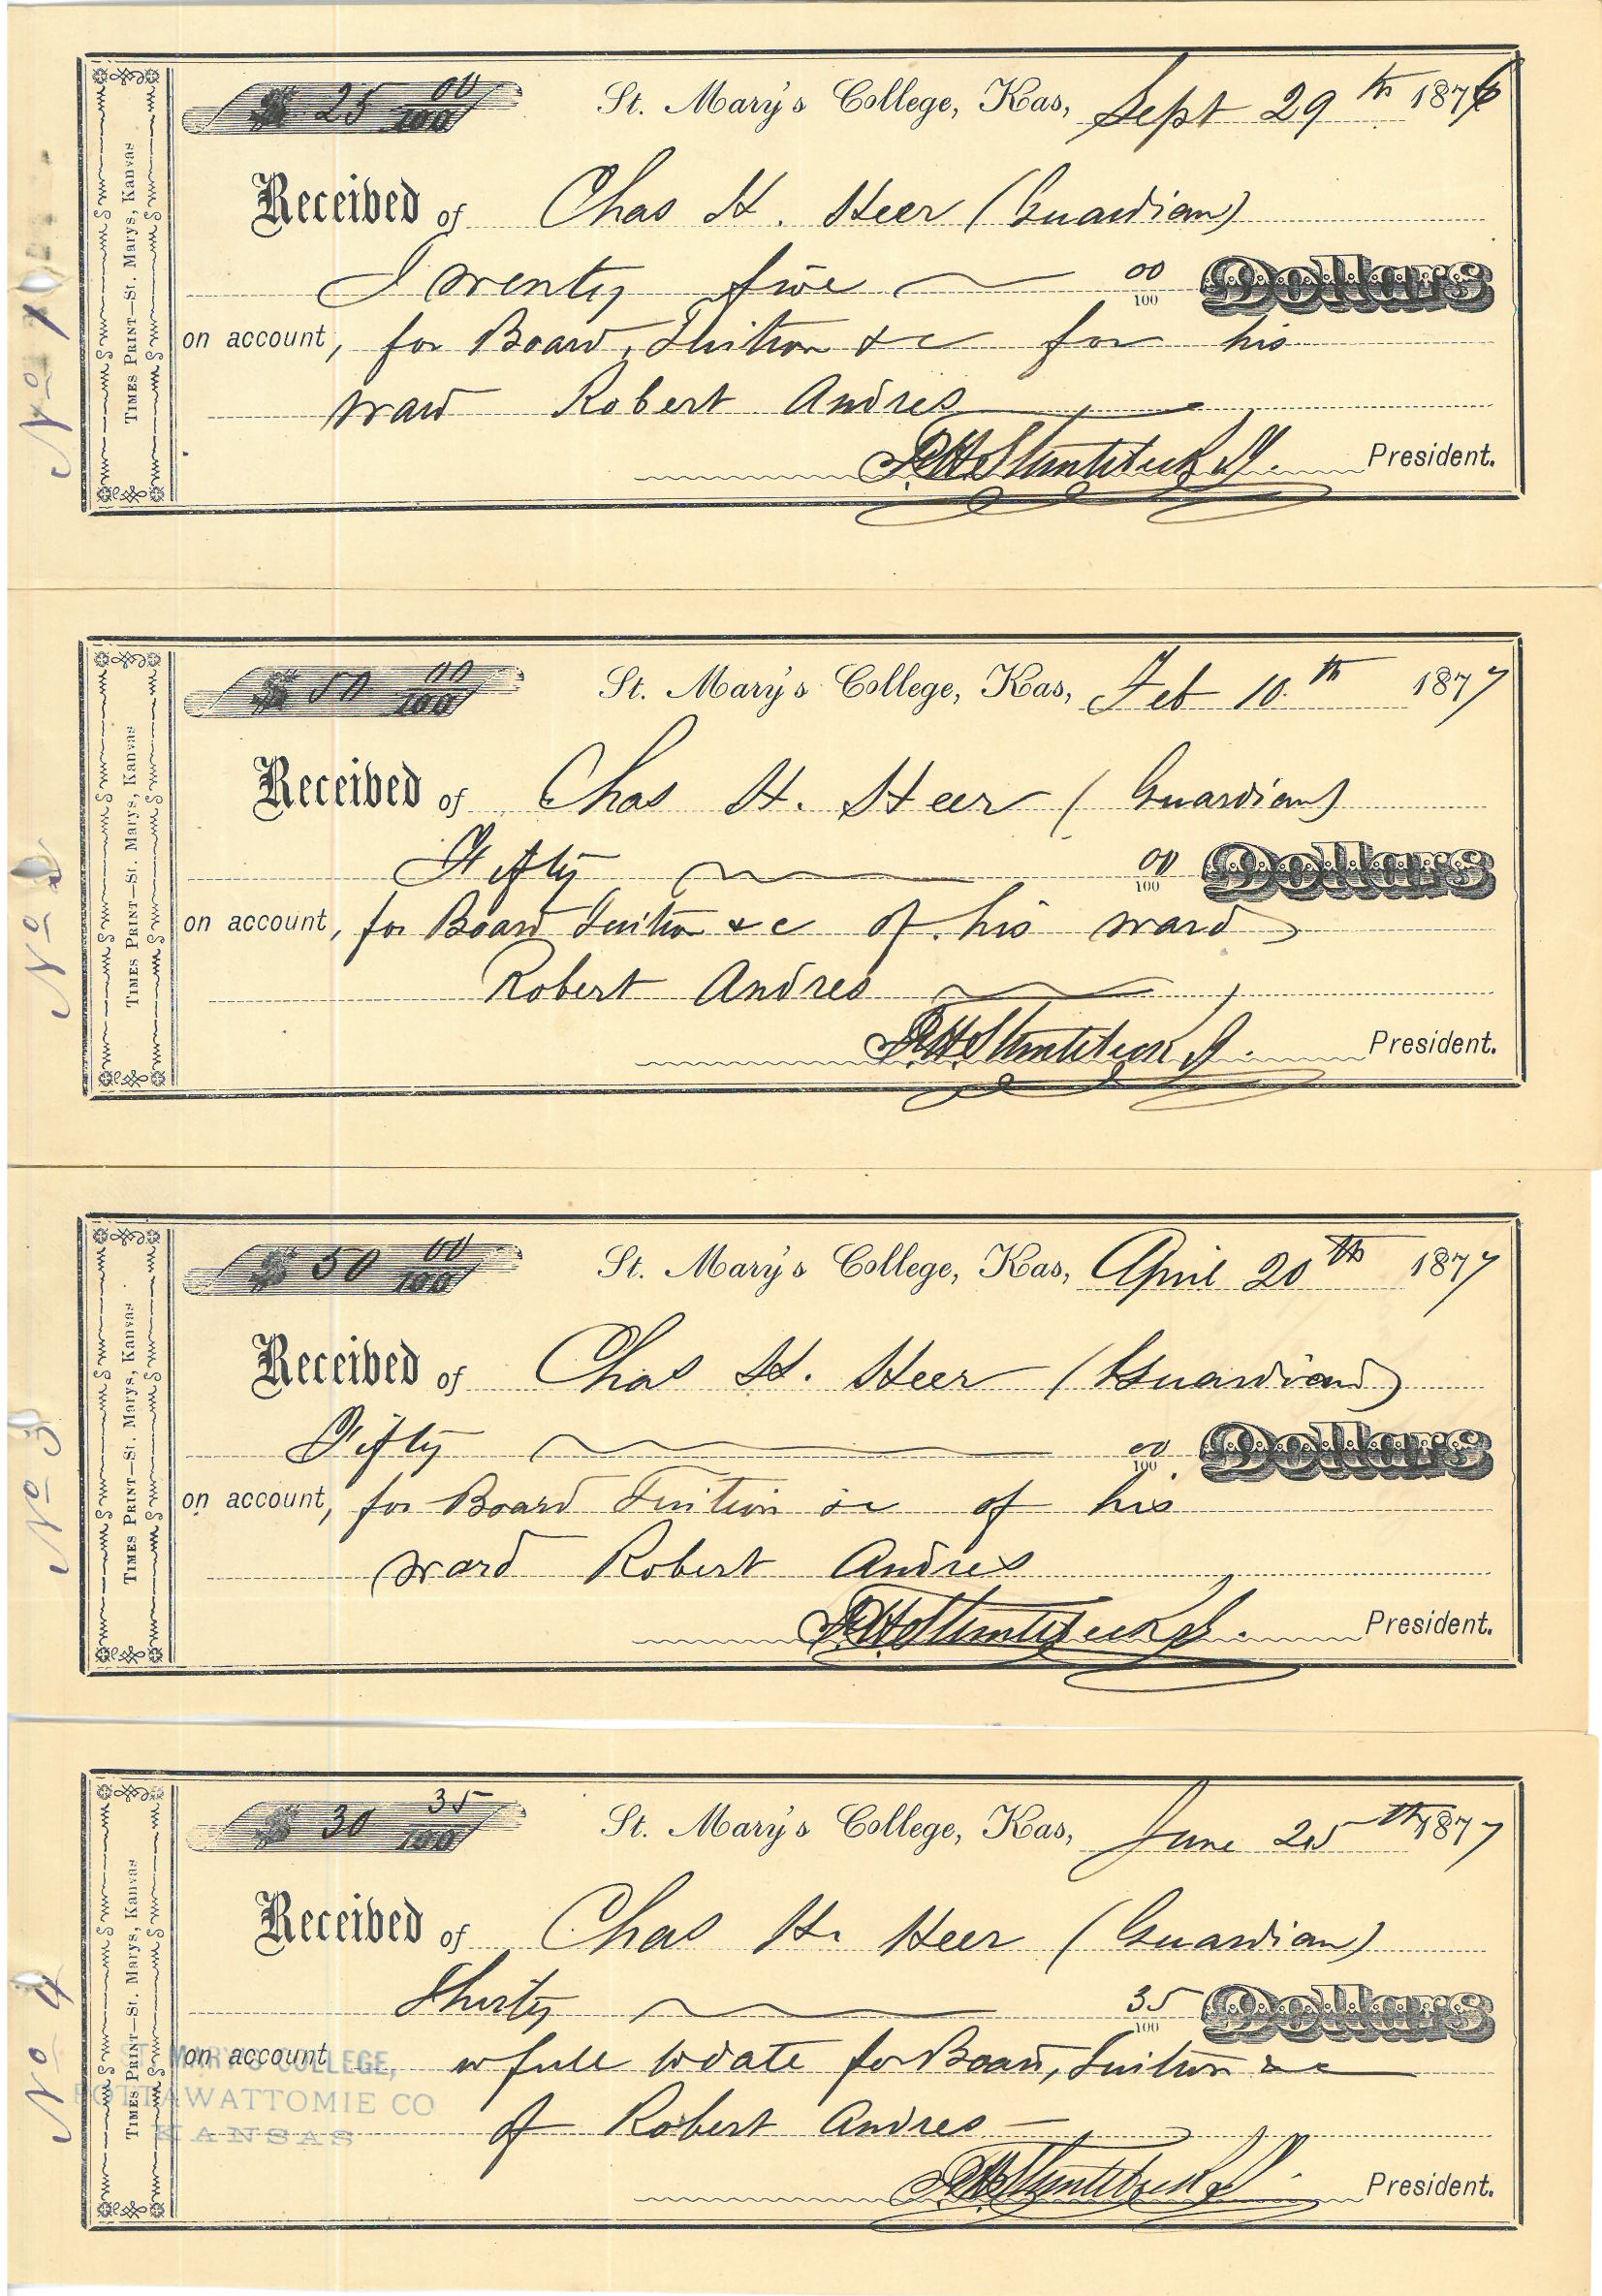 $ 25 00/100 St. Mary's College, Kas, Sept 29th 1876
Received of Chas H. Heer (Guardian)
Twenty five 00/100 Dollars
on account, for Board, Tuition &c for his
ward Robert Andres
President.
TIMES PRINT—St. Marys, Kansas
No 1
$ 50 00/100 St. Mary's College, Kas, Feb 10th 1877
Received of Chas H. Heer (Guardian)
Fifty 00/100 Dollars
on account, for Board Tuition &c of his ward
Robert Andres
President.
TIMES PRINT—St. Marys, Kansas
No 2
$ 50 00/100 St. Mary's College, Kas, April 20th 1877
Received of Chas H. Heer (Guardian)
Fifty 00/100 Dollars
on account, for Board Tuition &c of his
ward Robert Andres
President.
TIMES PRINT—St. Marys, Kansas
No 3
$ 30 35/100 St. Mary's College, Kas, June 25th 1877
Received of Chas H. Heer (Guardian)
Thirty 35/100 Dollars
on account in full to date for Board, Tuition &c
of Robert Andres
President.
TIMES PRINT—St. Marys, Kansas
No 4
ST. MARY'S COLLEGE,
POTTAWATTOMIE CO
KANSAS